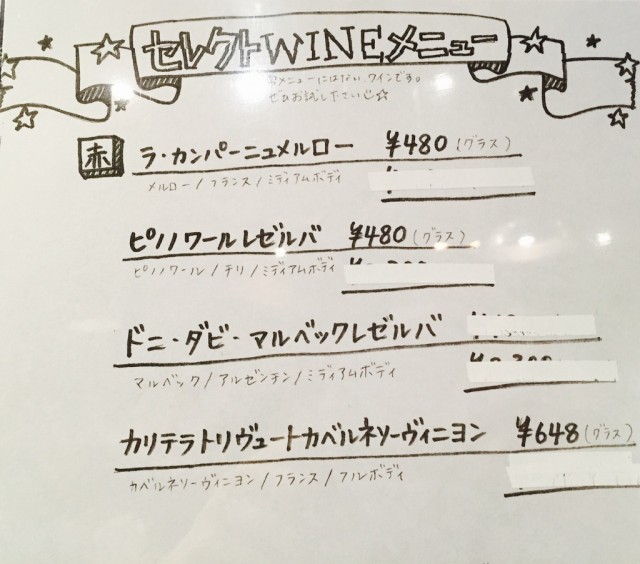 セレクトWINEメニュー
メニューにはない、ワインです。
ぜひお試しださい☆
赤 ラ・カンパーニュメルロー ¥480 (グラス)
メルロー / フランス / ミディアムボディ
ピノノワールレゼルバ ¥480 (グラス)
ピノノワール / チリ / ミディアムボディ
ドニ・ダビ・マルベックレゼルバ
マルベック / アルゼンテン / ミディアムボディ
カリテラトリヴュートカベルネソーヴィニヨン ¥648 (グラス)
カベルネソーヴィニヨン / フランス / フルボディ